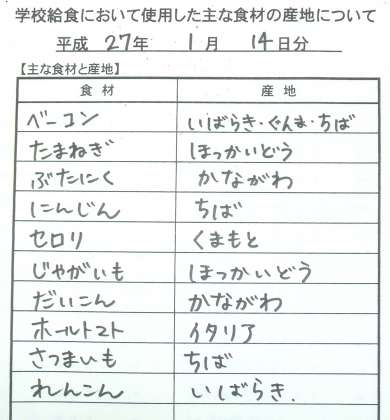 学校給食において使用した主な食材の産地について
平成 27年 1月 14日分
【主な食材と産地】
食材 産地
ベーコン いばらき・ぐんま・ちば
たまねぎ ほっかいどう
ぶたにく かながわ
にんじん ちば
セロリ くまもと
じゃがいも ほっかいどう
だいこん かながわ
ホールトマト イタリア
さつまいも ちば
れんこん いばらき.